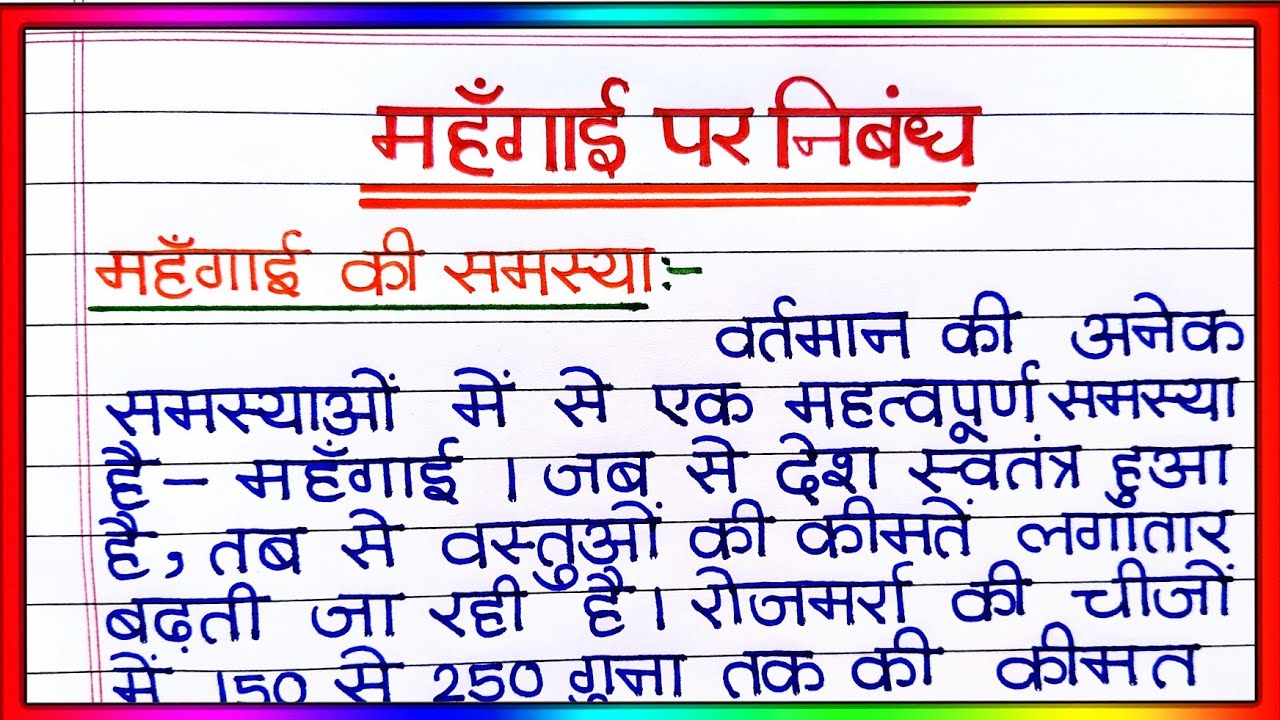 महँगाई पर निबंध
महँगाई की समस्या:-
वर्तमान की अनेक
समस्याओं में से एक महत्वपूर्ण समस्या
है - महँगाई । जब से देश स्वतंत्र हुआ
है, तब से वस्तुओं की कीमतें लगातार
बढ़ती जा रही है। रोजमर्रा की चीजों
में 150 से 250 गुना तक की कीमत